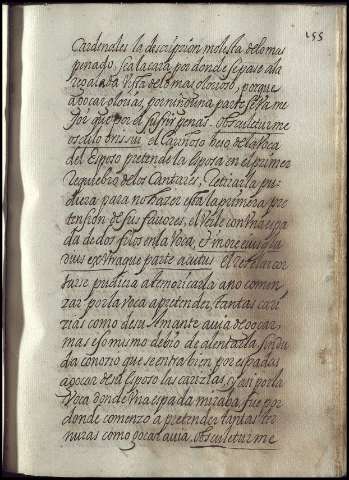 155
Cardenales la descripcion molesta delo mas
penado, se alacara por donde se pase ala
regalada vista delo mas glorioso, porque
agoçar glorias, por ninguna parte se va me
jor que por el sufrir penas. Obsculetur me
osculo oris sui el cariñoso beso de la voca
del Esposo pretende la esposa en el primer
requiebro delos Cantares, retirarla pu-
diera para no hazer esta la primera pre
tension de sus fauores, el verle con vna espa
da de dos filos en la voca, & in ore eius gla
dius ex vtraque parte acutus el
pudiera atemoriçarla ano comen
zar por la voca a pretender, tantas cari
zias como de su Amante auia de goçar,
mas eso mismo debio de alentarla, sin du
da conozio que se entra bien por espadas
a goçar de su Esposo las carizias, y asi por la
voca donde vna espada miraba fue por
donde comenzo a pretender tantas ter
nuras como goçar auia, obsculetur me